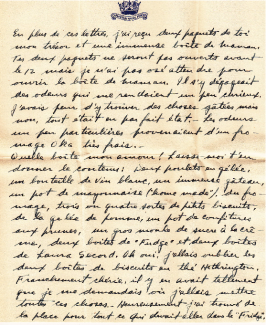 En plus de ces lettres, j'ai reçu deux paquets de toi
mon trésor et une immense boîte de maman.
Tes deux paquets ne seront pas ouverts avant
le 12 mais je n'ai pas osé attendre pour
ouvrir la boîte de maman. Il s'y dégageait
des odeurs qui me rendaient un peu curieux.
J'avais peur d'y trouver des choses gâtées mais
non, tout était en parfait état. Les odeurs
un peu particulières provenaient d'un fro-
mage Oka très frais.
Quelle boîte mon amour! Laisse-moi t'en
donner le contenu; Deux poulets en gelée,
une bouteille de vin blanc, un immense gâteau,
un pot de mayonnaise (home made), du fro-
mage, trois ou quatre sortes de petits biscuits,
de la gelée de pomme, un pot de confitures
aux prunes, un gros moule de sucre à la crè-
me, deux boîtes de "Fudge" et deux boîtes
de Laura Secord. Ah oui, j'allais oublier les
deux boîtes de biscuits au thé Hethrington.
Franchement chérie, il y en avait tellement
que je me demandais où j'allais mettre
toute ces choses. Heureusement j'ai trouvé de
la place pour tout ce qui devait aller dans le "Fridge".